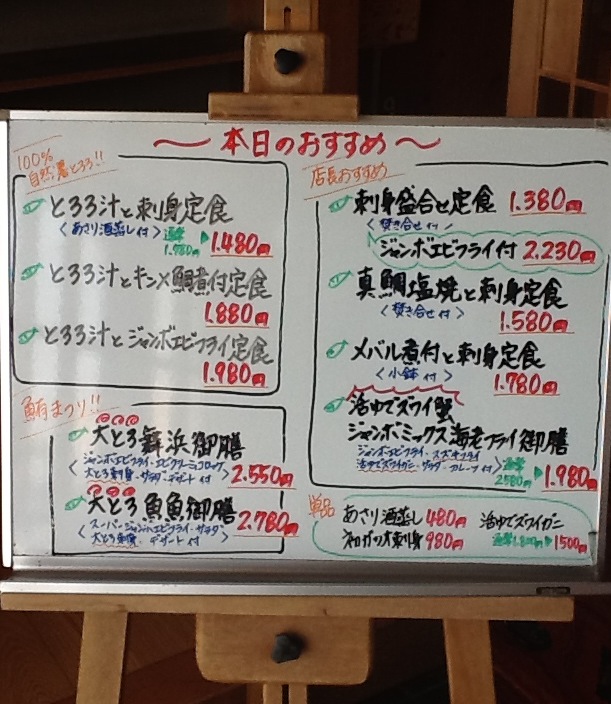 〜本日のおすすめ〜
100%
自然薯とろろ!!
とろろ汁と刺身定食
〈あさり酒蒸し付〉通常1.780円▶1.480円
とろろ汁とキンメ鯛煮付定食
1.880円
とろろ汁とジャンボエビフライ定食
1.980円
鮪まつり!!
大とろ舞浜御膳
ジャンボエビフライ・エビクリーミコロッケ
大とろ刺身・サラダ・デザート付 2.550円
大とろ魚魚御膳
〈スーパージャンボエビフライ・サラダ・
大とろ刺身・デザート付〉 2.780円
店長おすすめ
刺身盛合せ定食 1.380円
〈焚き合せ付〉
ジャンボエビフライ付 2.230円
真鯛塩焼と刺身定食
〈焚き合せ付〉
1.580円
メバル煮付と刺身定食
〈小鉢付〉 1.780円
活ゆでズワイ蟹
ジャンボミックス海老フライ御膳
ジャンボエビフライ・スズキフライ
活ゆでズワイガニ・サラダ・フルーツ付〉通常2580円▶1.980円
単品
あさり酒蒸し 480円
初がつお刺身 980円
活ゆでズワイガニ
通常1.800円▶1500円